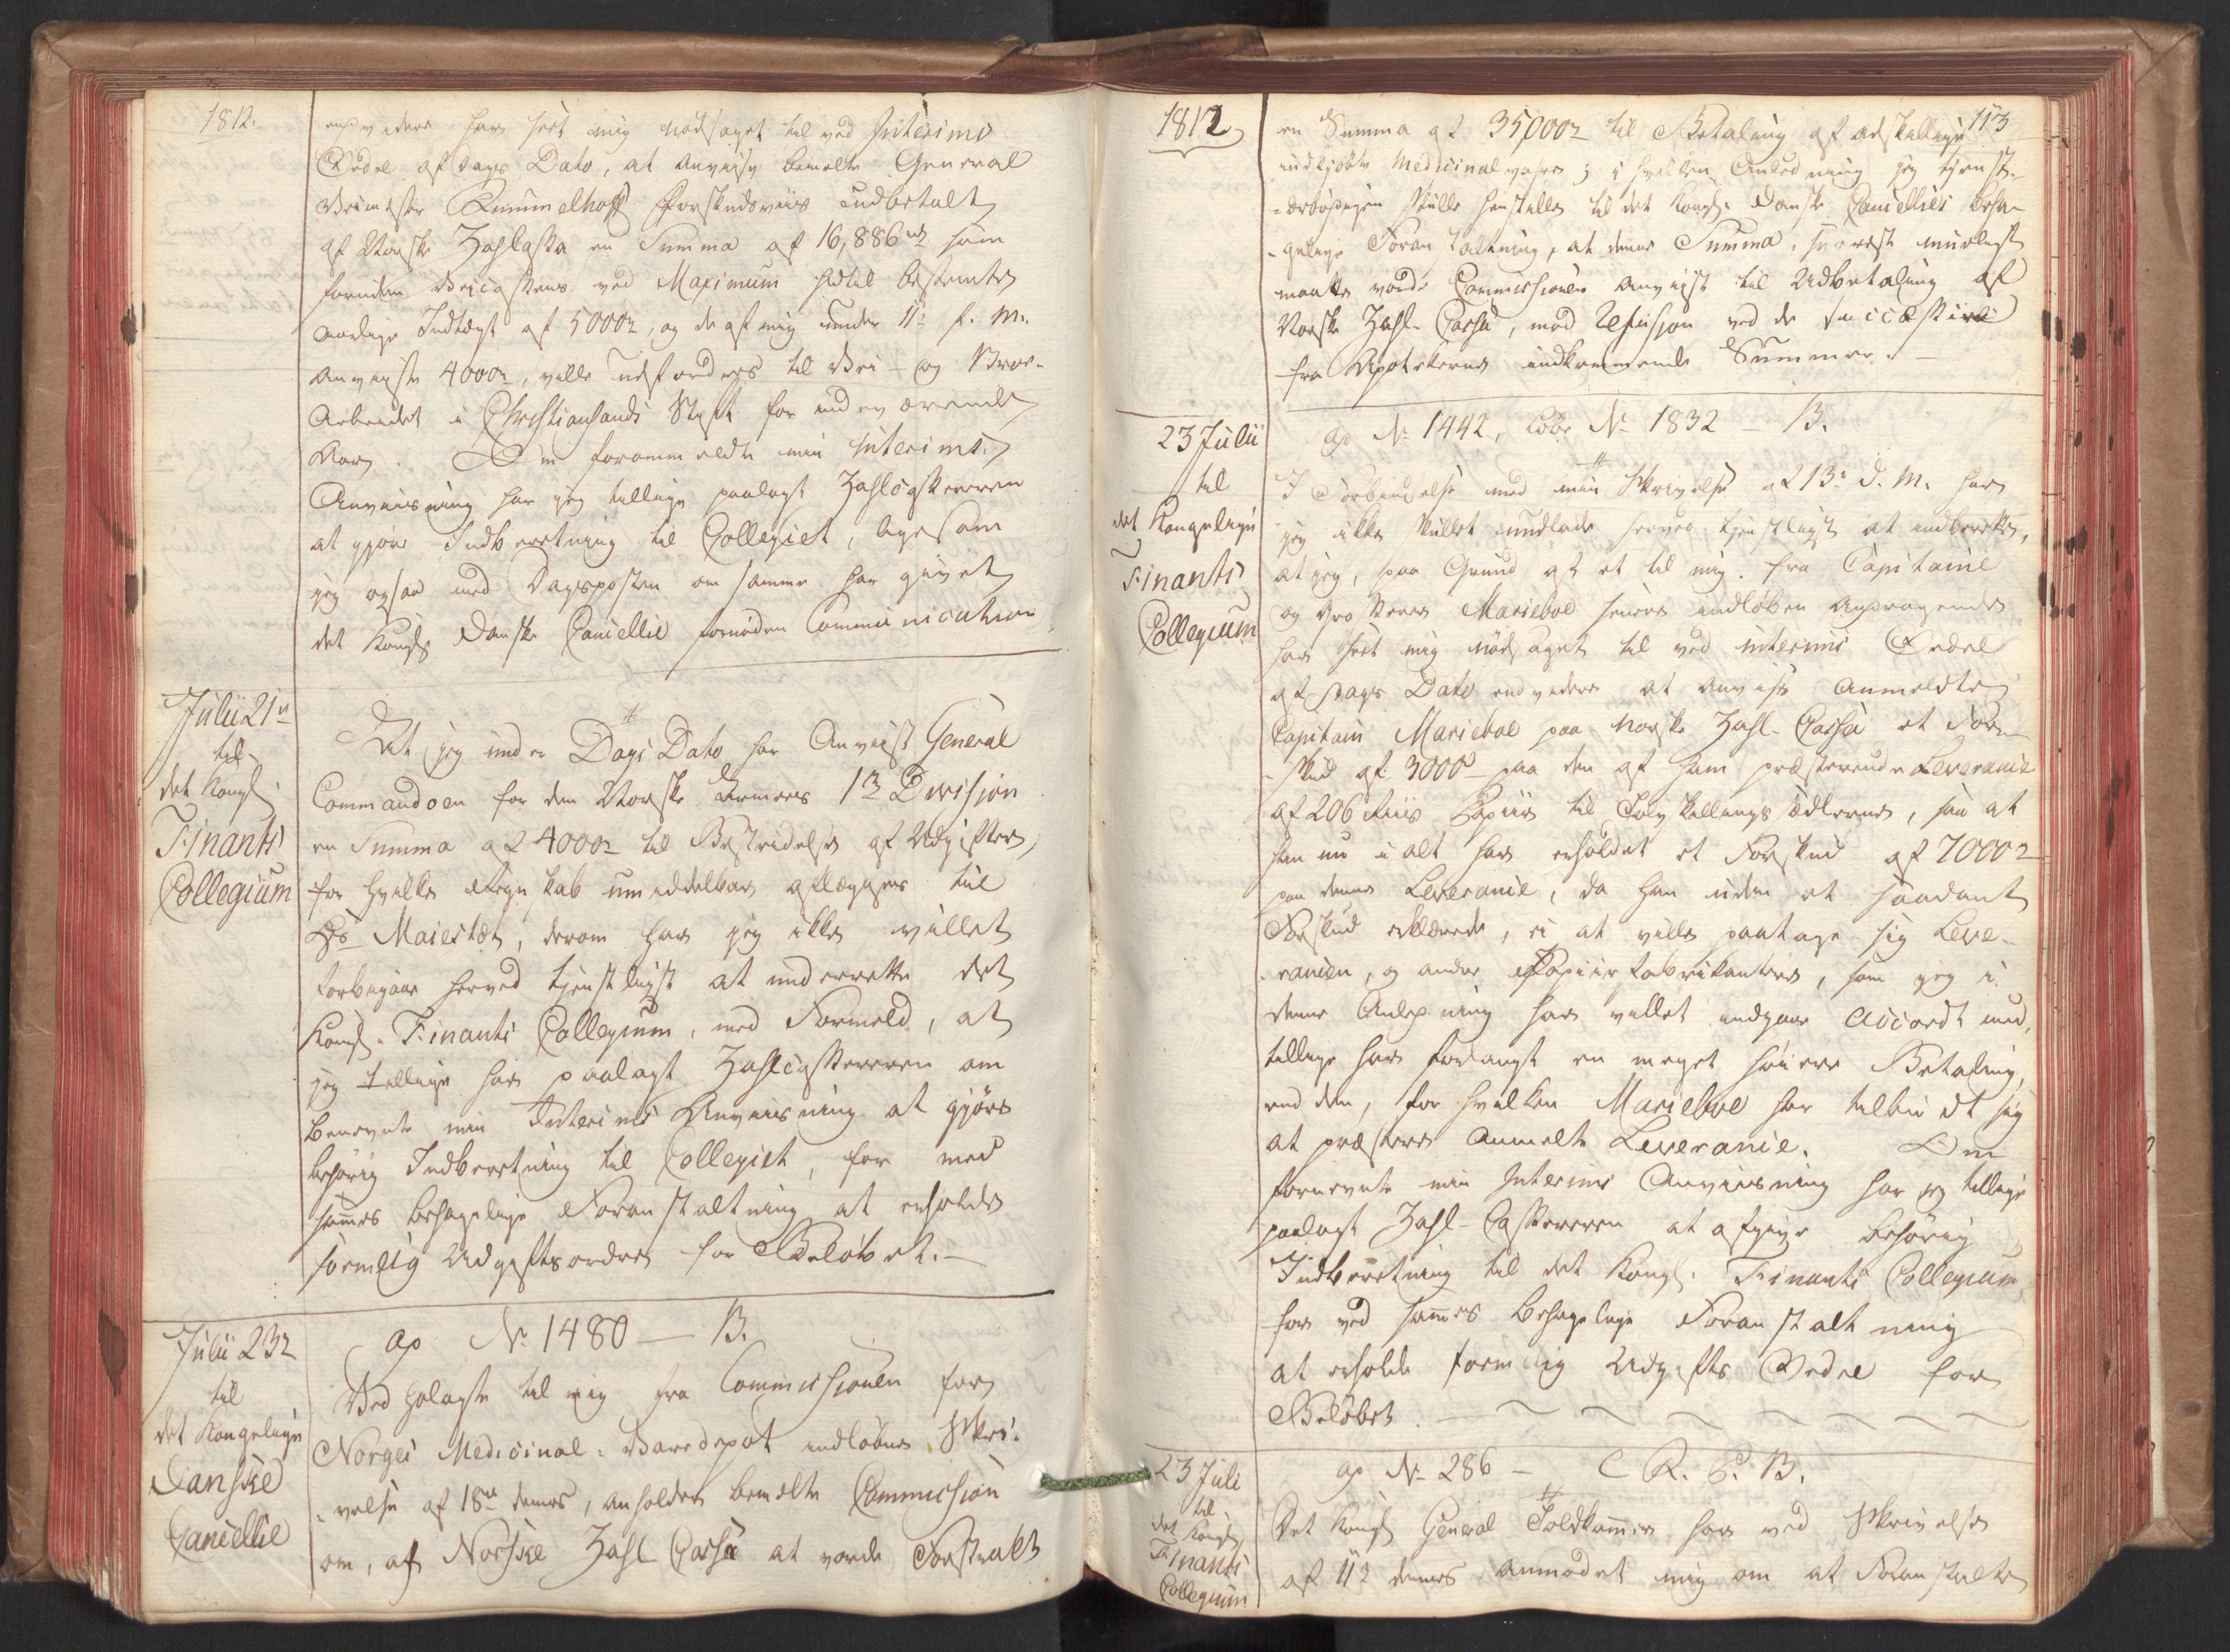 1812.
endvidere har seet mig nødsaget til ved Interims
Ordre af Dags Dato, at anviise bemelte General
Veimester Kummelhoff Forskudsviis udbetalt
af Norske Zahlkassa en Summa af 16,886 rd som
foruden Veicassens ved Maximum hidtil bestemte
aarlige Indtægt af 5000 rd, og de af mig under 11te f. M.
anviiste 4000 rd, ville udfordres til Vei- og Broe-
Arbeidet i Christiansands Stift for indeværende
Aar. Om foranmeldte min Interims
Anviisning har jeg tillige paalagt Zahlcassereren
at gjøre Indberetning til Collegiet, ligesom
jeg ogsaa med Dagsposten om samme har givet
det Kongl. Danske Cancellie fornøden Communication.
Julii 21de
til
det Kongl.
Finants
Collegium
At jeg under Dags Dato har Anviist General
Commandoen for den Norske Armees 1ste Division
en Summa af 4000 rd til Bestridelse af Udgifter,
for hvilke Regnskab umiddelbar aflægges til
Hs Maiestæt, derom har jeg ikke villet
forbigaae herved tjenstligst at underrette det
Kongl. Finants Collegium, med Formeld, at
jeg tillige har paalagt Zahlcassereren om
benevnte min Interims Anviisning at gjøre
behørig Indberetning til Collegiet, for med
sammes behagelige Foranstaltning at erholde
formelig Udgiftsordre for Beløbet.—
Julii 23de
til
det Kongelige
Danske
Cancellie
ap No 1480 — B.
Ved Følgte til mig fra Commissionen for
Norges Medicinal-Varedepot indløbne Skri-
velse af 18de dennes, anholder bemelte Commission
om, af Norske Zahl Cassa at vorde Forstrakt
1812
113
en Summa af 35,000 rd til Betaling af adskillige
indkjøbte Medicinalvahrer; i hvilken Anledning jeg tjenst-
-ærbødigen skulle henstille til det Kongl. Danske Cancellies beha-
-gelige Foranstaltning, at denne Summa, snarest mueligst
maatte vorde Commissionen anviist til Udbetaling af
Norske Zahl-Cassa, mod Refusion ved de successive
fra Apotekerne indkommende Summer.—
23 Julii
til
det Kongelige
Finants
Collegium
ap No 1442, Cobr No 1832 — B.
I Forbindelse med min Skrivelse af 13de d. M. har
jeg ikke skullet undlade herved tjenstligst at indberette,
at jeg, paa Grund af et til mig fra Capitaine
og Marieboe senere indløben Andragende
har seet mig nødsaget til ved interims Ordre
af Dags Dato endvidere at anviise Anmeldte
Capitain Marieboe paa Norske Zahl-Cassa et For-
-skud af 3000 rd paa den af ham præsterende Leverance
af 206 Riis Papiir til Tolvskillings Sedlerne, saa at
han nu i alt har erholdet et Forskud af 7000 rd
paa denne Leverance, da han uden et saadant
Forskud erklærede, ei at ville paatage sig Leve-
-rancen, og andre Papiirfabrikanter, som jeg i
denne Anledning har villet indgaae Accordt med,
tillige har forlangt en meget høiere Betaling,
end den, for hvilken Marieboe har tilbudt sig
at præstere Anmeldte Leverance. Om
fornevnte min Interims Anviisning har jeg tillige
paalagt Zahl-Cassereren at afgive behørig
Indberetning til det Kongl. Finants Collegium
for ved sammes behagelige Foranstaltning
at erholde formelig Udgifts Ordre for
Beløbet.
23 Juli
til
det Kongl.
Finants
Collegium
ap No 286 — C R. C. B.
Det Kongl. General Toldkammer har ved Skrivelse
af 11te dennes anmodet mig om at Foranstalte